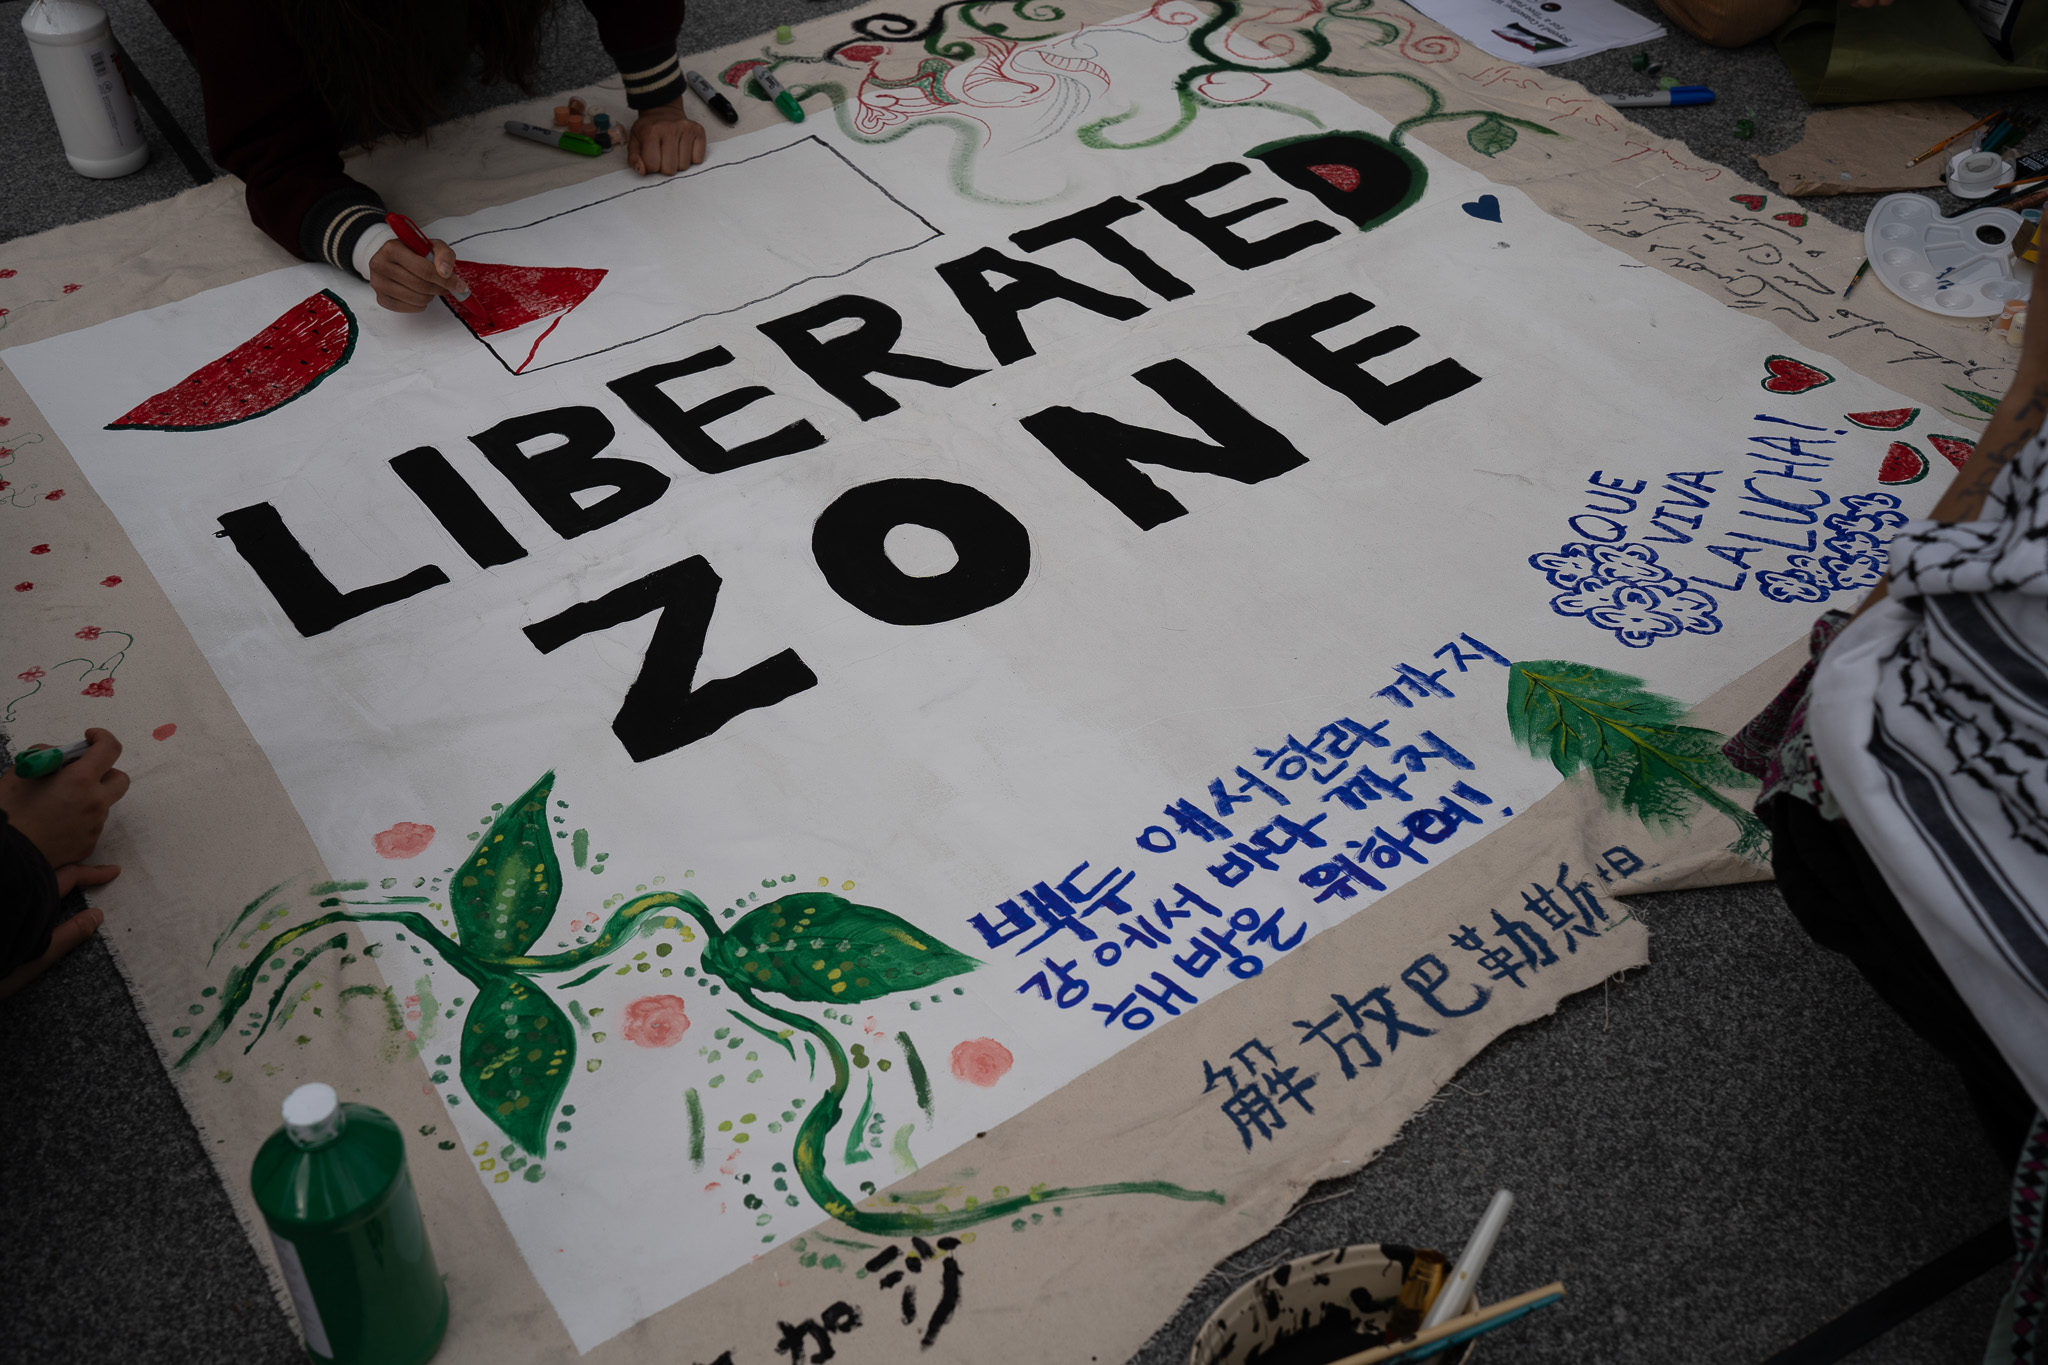 LIBERATED
ZONE
QUE
VIVA
LA LUCHA!
백두에서 한라까지
강에서 바다까지
해방은 위하여!
解放巴勒斯坦
加